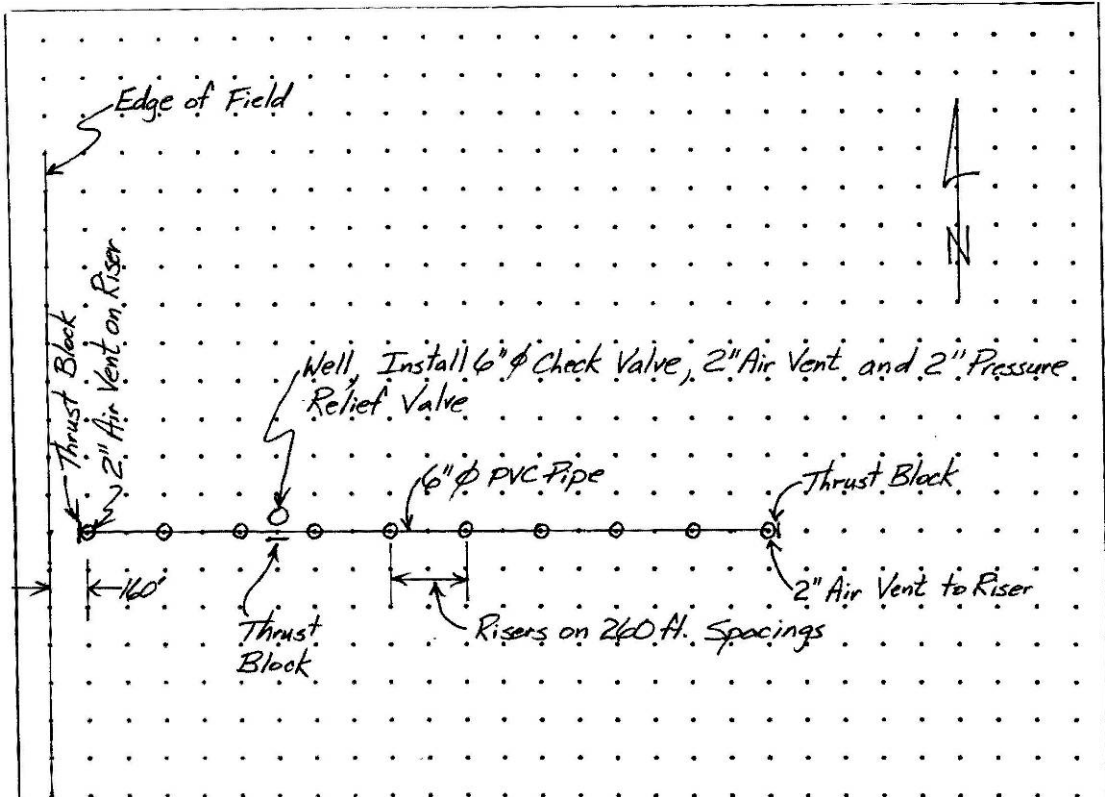 Edge of Field
N
Thrust Block
2" Air Vent on Riser
Well, Install 6" ϕ Check Valve, 2" Air Vent and 2" Pressure
Relief Valve
6" ϕ PVC Pipe
Thrust Block
160'
2" Air Vent to Riser
Thrust
Block
Risers on 260 ft. Spacings